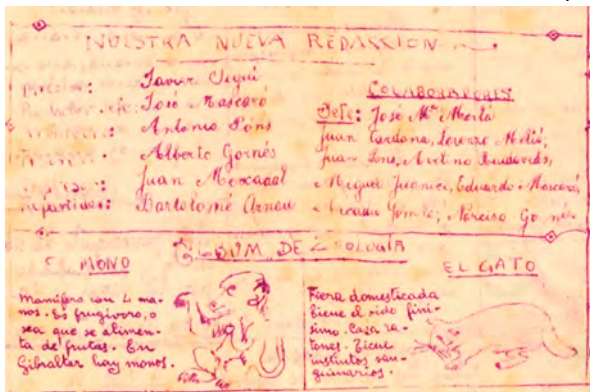 NUESTRA NUEVA REDACCIÓN
Javier Seguí
José Mascaró
Antonio Póns
Alberto Gornés
Juan Mercadal
Repartidor: Bartolomé Arnau
COLABORADORES
Jefe: José Mª
Juan Cardona, Lorenzo Meliá,
Juan Pons,
Miguel Juanico, Eduardo Mascaró,
Narciso
ÁLBUM DE ZOOLOGÍA
MONO
Mamífero con 4 ma-
nos. Es frugívoro, o
sea que se alimen-
ta de frutas. En
Gibraltar hay monos.
EL GATO
Fiera domesticada
tiene el oido finí-
simo. Caza ra-
tones. Tiene
instintos san-
guinarios.